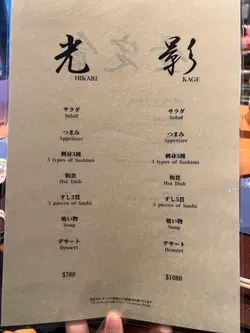 光
HIKARI
影
KAGE
サラダ
Salad
つまみ
Appetizer
刺身3種
3 types of Sashimi
和食
Hot Dish
すし3貫
3 pieces of Sushi
吸い物
Soup
デザート
Dessert
$780
サラダ
Salad
つまみ
Appetizer
刺身5種
5 types of Sashimi
和食
Hot Dish
すし5貫
5 pieces of Sushi
吸い物
Soup
デザート
Dessert
$1080